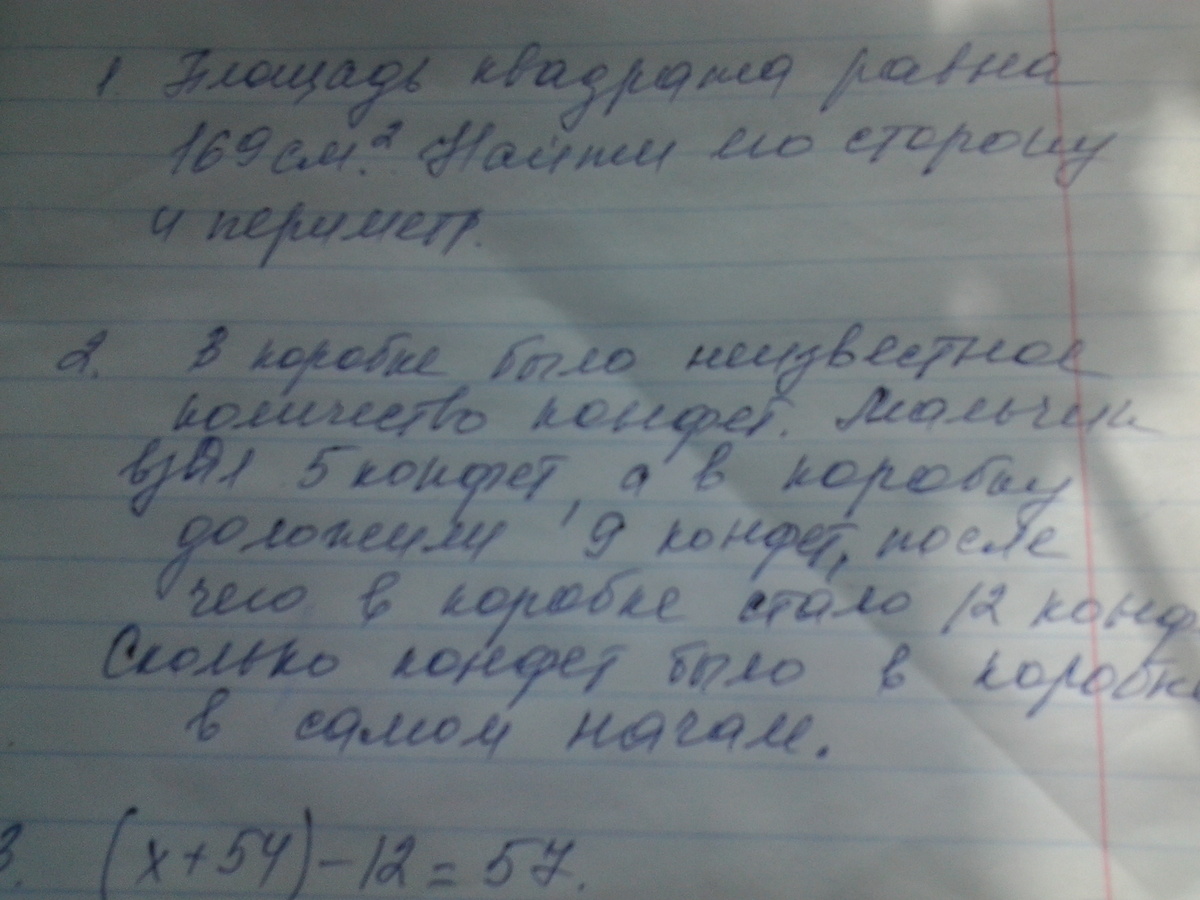 1. Площадь квадрата равна
169 см². Найти его сторону
и периметр.
2. В коробке было неизвестное
количество конфет. Мальчик
взял 5 конфет, а в коробку
доложили 9 конфет, после
чего в коробке стало 12 конф
Сколько конфет было в коробке
в самом начале.
3. (x+54)-12=57.